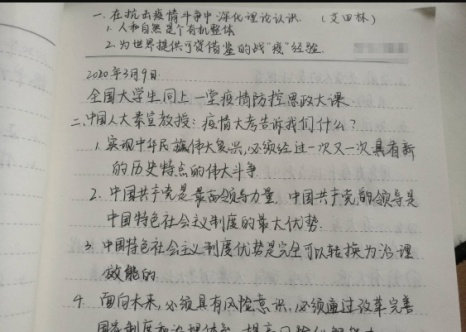 一. 在抗击疫情斗争中深化理论认识. (艾四林)
1. 人和自然是个有机整体
2. 为世界提供可资借鉴的战"疫"经验.
2020年3月9日
全国大学生同上一堂疫情防控思政大课
二. 中国人大秦宣教授: 疫情大考告诉我们什么?
1. 实现中华民族伟大复兴, 必须经过一次又一次具有新
的历史特点的伟大斗争
2. 中国共产党是最高领导力量. 中国共产党的领导是
中国特色社会主义制度的最大优势.
3. 中国特色社会主义制度优势是完全可以转换为治理
效能的
4. 面向未来, 必须具有风险意识, 必须通过改革完善
国家制度和治理体系, 提高